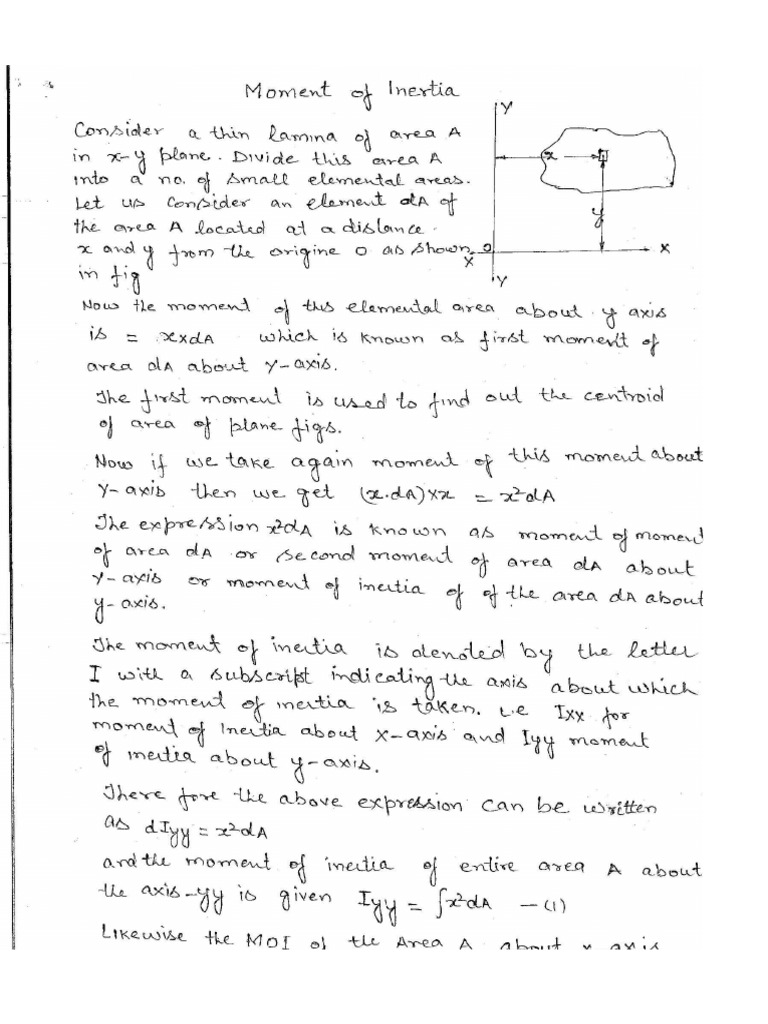 Moment of Inertia
Y
Consider a thin lamina of area A
in x-y plane. Divide this area A
x
into a no. of small elemental areas.
Let us consider an element dA of
the area A located at a distance
y
x and y from the origine O as shown
X O X
in fig
Y
Now the moment of this elemental area about y axis
is = x×dA which is known as first moment of
area dA about Y-axis.
The first moment is used to find out the centroid
of area of plane figs.
Now if we take again moment of this moment about
Y-axis then we get (x.dA)×x = x²dA
The expression x²dA is known as moment of moment
of area dA or second moment of area dA about
Y-axis or moment of inertia of of the area dA about
y-axis.
The moment of inertia is denoted by the letter
I with a subscript indicating the axis about which
the moment of inertia is taken. i.e Ixx for
moment of Inertia about X-axis and Iyy moment
of inertia about y-axis.
There fore the above expression can be written
as dIyy = x²dA
and the moment of inertia of entire area A about
the axis-yy is given Iyy = ∫x²dA — (1)
Likewise the MOI of the Area A about x axis